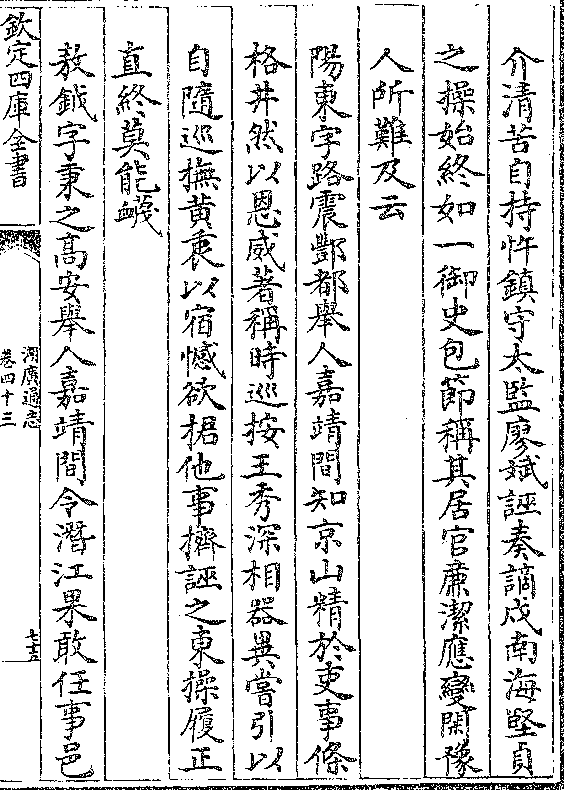 介清苦自持忤鎮守太監廖斌誣奏謫戍南海堅貞
之操始終如一御史包節稱其居官㢘潔應變閑豫
人所難及云
陽東字路震酆都舉人嘉靖間知京山精於吏事條
格井然以恩威著稱時巡按王秀深相器異嘗引以
自隨巡撫黄衷以宿憾欲捃他事擠誣之東操履正
直終莫能衊
敖鉞字秉之髙安舉人嘉靖間令潛江果敢任事邑
欽定四庫全書
湖廣通志
卷四十三
七十五